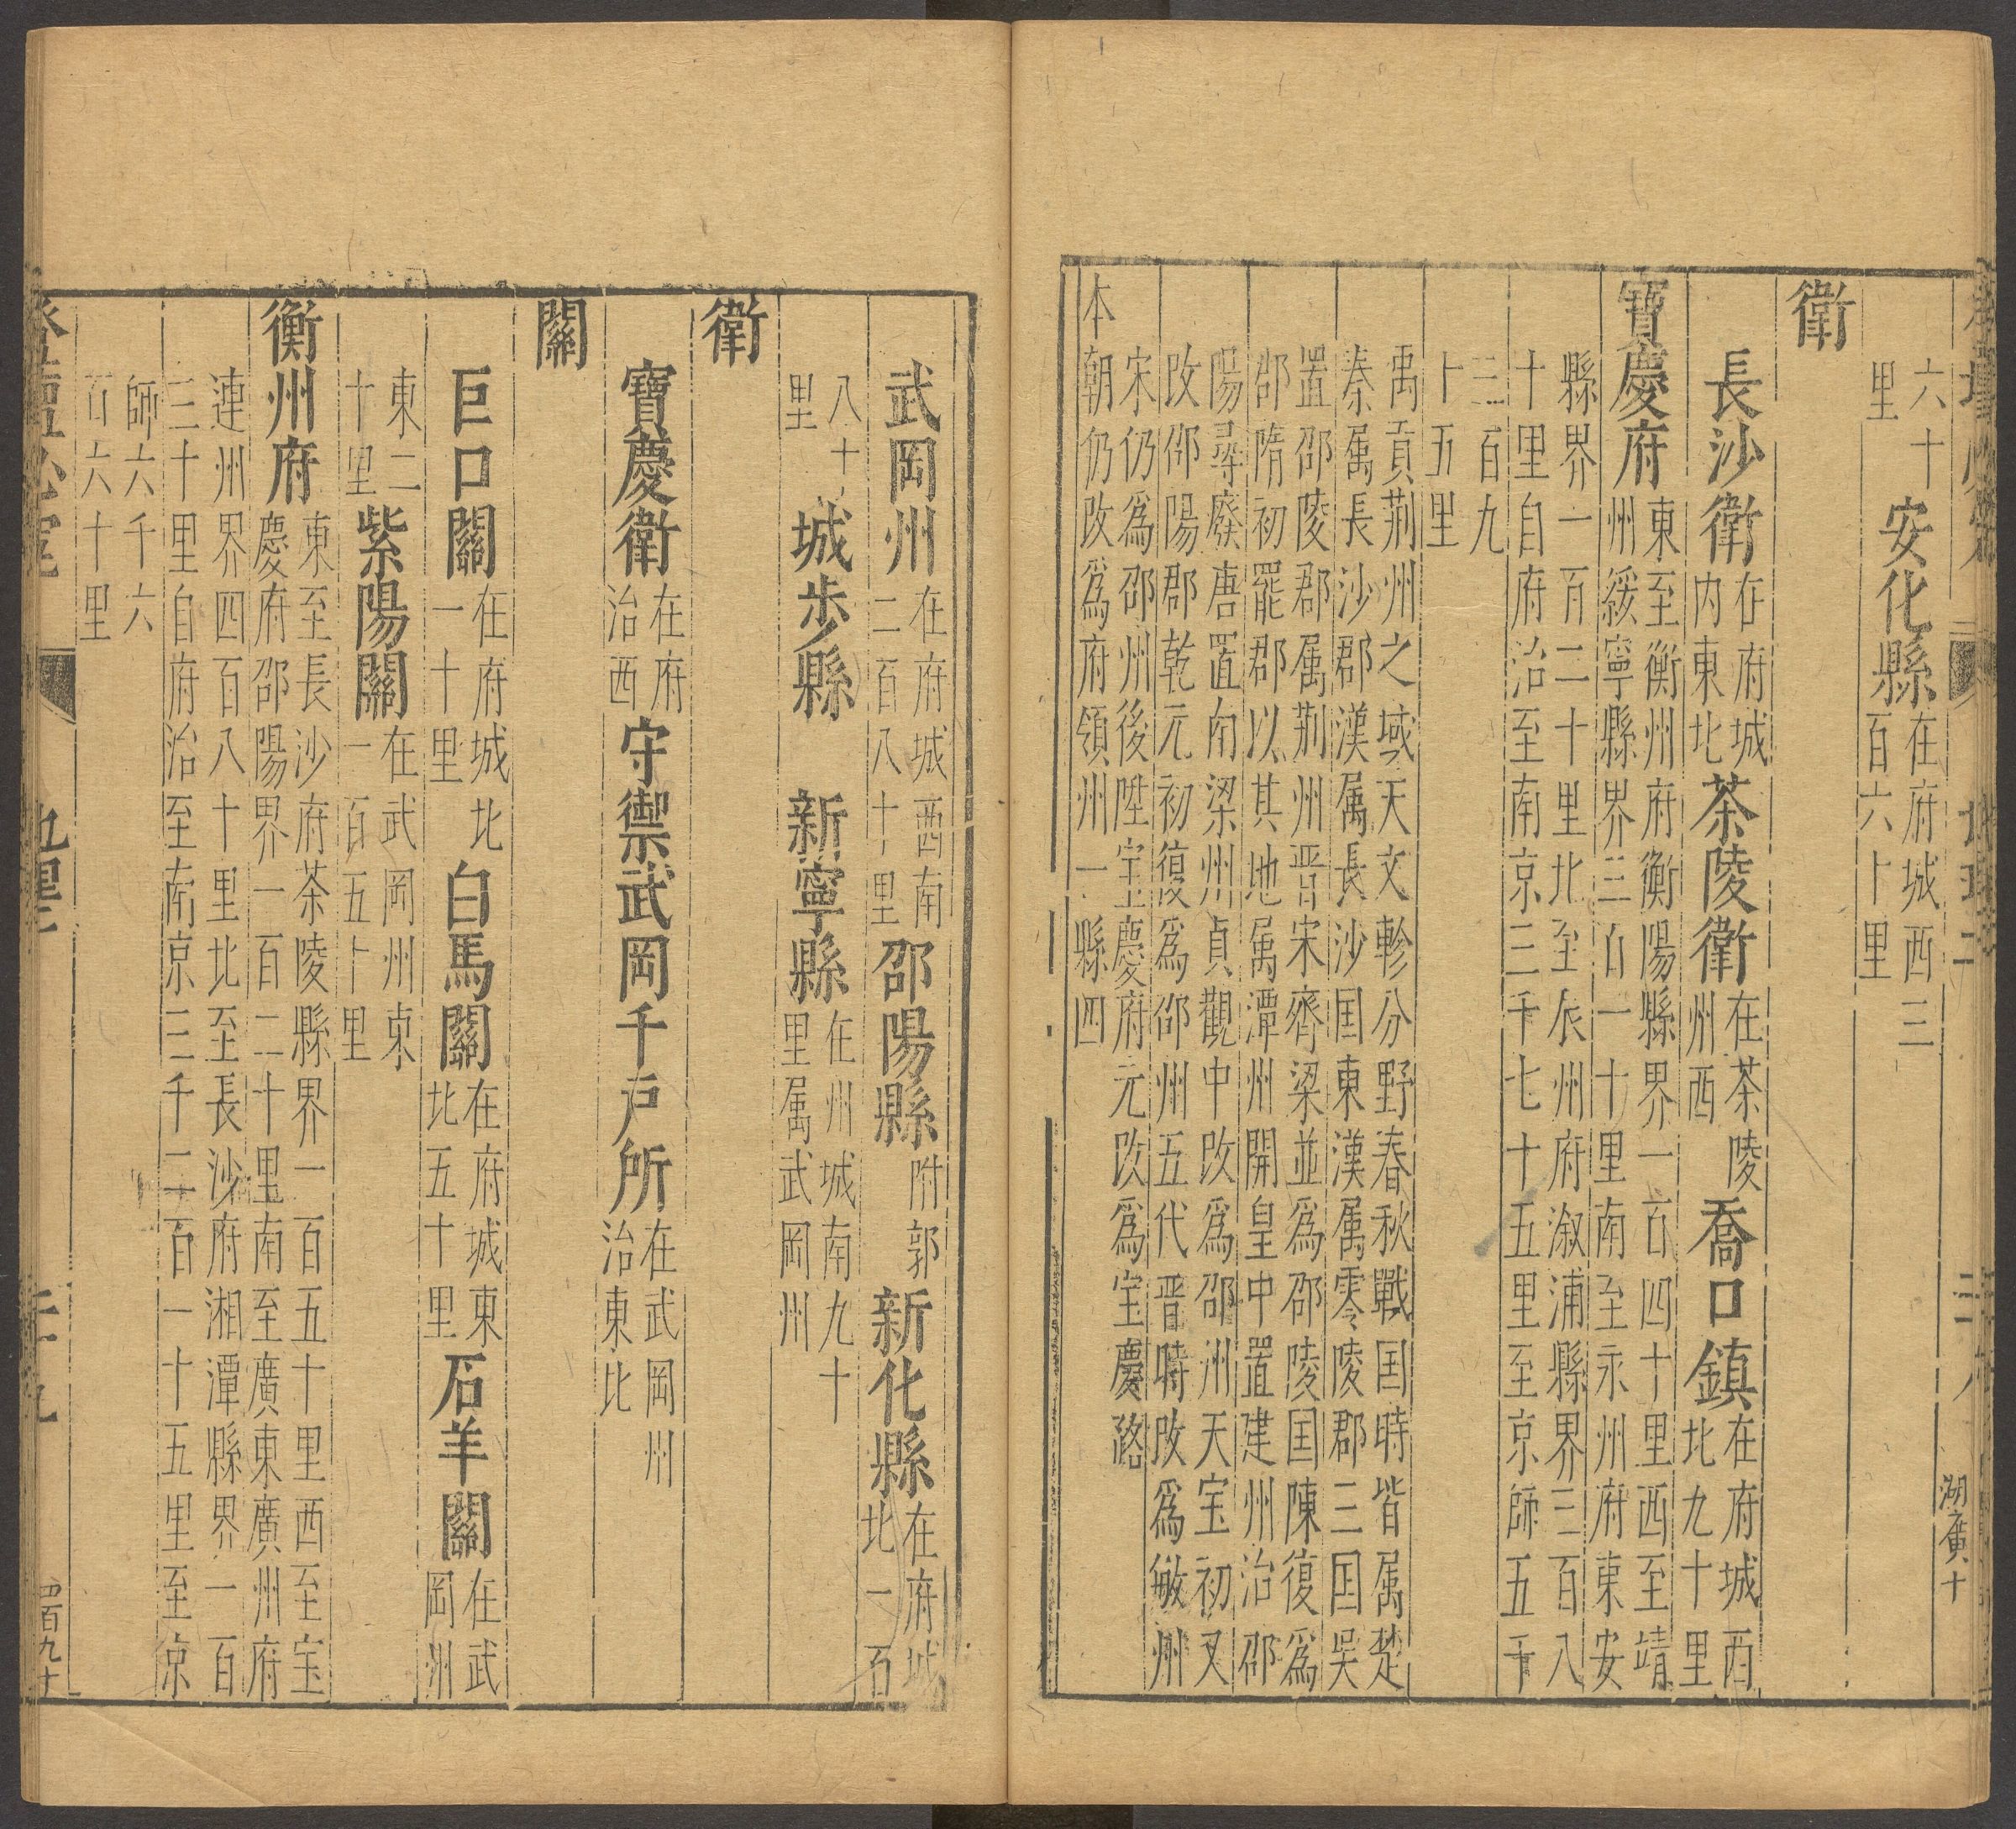 六十
里
安化縣
在府城西三
百六十里
衛
長沙衛
在府城
内東北
茶陵衛
在茶陵
州西
喬口鎮
在府城西
北九十里
寶慶府
東至衡州府衡陽縣界一百四十里西至靖
州綏寧縣界三百一十里南至永州府東安
縣界一百二十里北至辰州府溆浦縣界三百八
十里自府治至南京三千七十五里至京師五千
三百九
十五里
禹貢荆州之域天文軫分野春秋戰国時皆属楚
秦属長沙郡漢属長沙国東漢属零陵郡三国吳
置邵陵郡属荆州晋宋齊梁並爲邵陵国陳復爲
郡隋初罷郡以其地属潭州開皇中置建州治邵
陽尋廢唐置南梁州貞觀中改爲邵州天宝初又
改邵陽郡乾元初復爲邵州五代晋時改爲敏州
宋仍爲邵州後陞宝慶府元改爲宝慶路
本朝仍改爲府領州一縣四
湖廣十
武岡州
在府城西南
二百八十里
邵陽縣
附郭
新化縣
在府城
北一百
八十
里
城步縣
新寧縣
在州城南九十
里属武岡州
衛
寶慶衛
在府
治西
守禦武岡千戸所
在武岡州
治東北
關
巨口關
在府城北
一十里
白馬關
在府城東
北五十里
石羊關
在武
岡州
東二
十里
紫陽關
在武岡州東
一百五十里
衡州府
東至長沙府茶陵縣界一百五十里西至宝
慶府邵陽界一百二十里南至廣東廣州府
連州界四百八十里北至長沙府湘潭縣界一百
三十里自府治至南京三千二百一十五里至京
師六千六
百六十里
二十九
四百九十